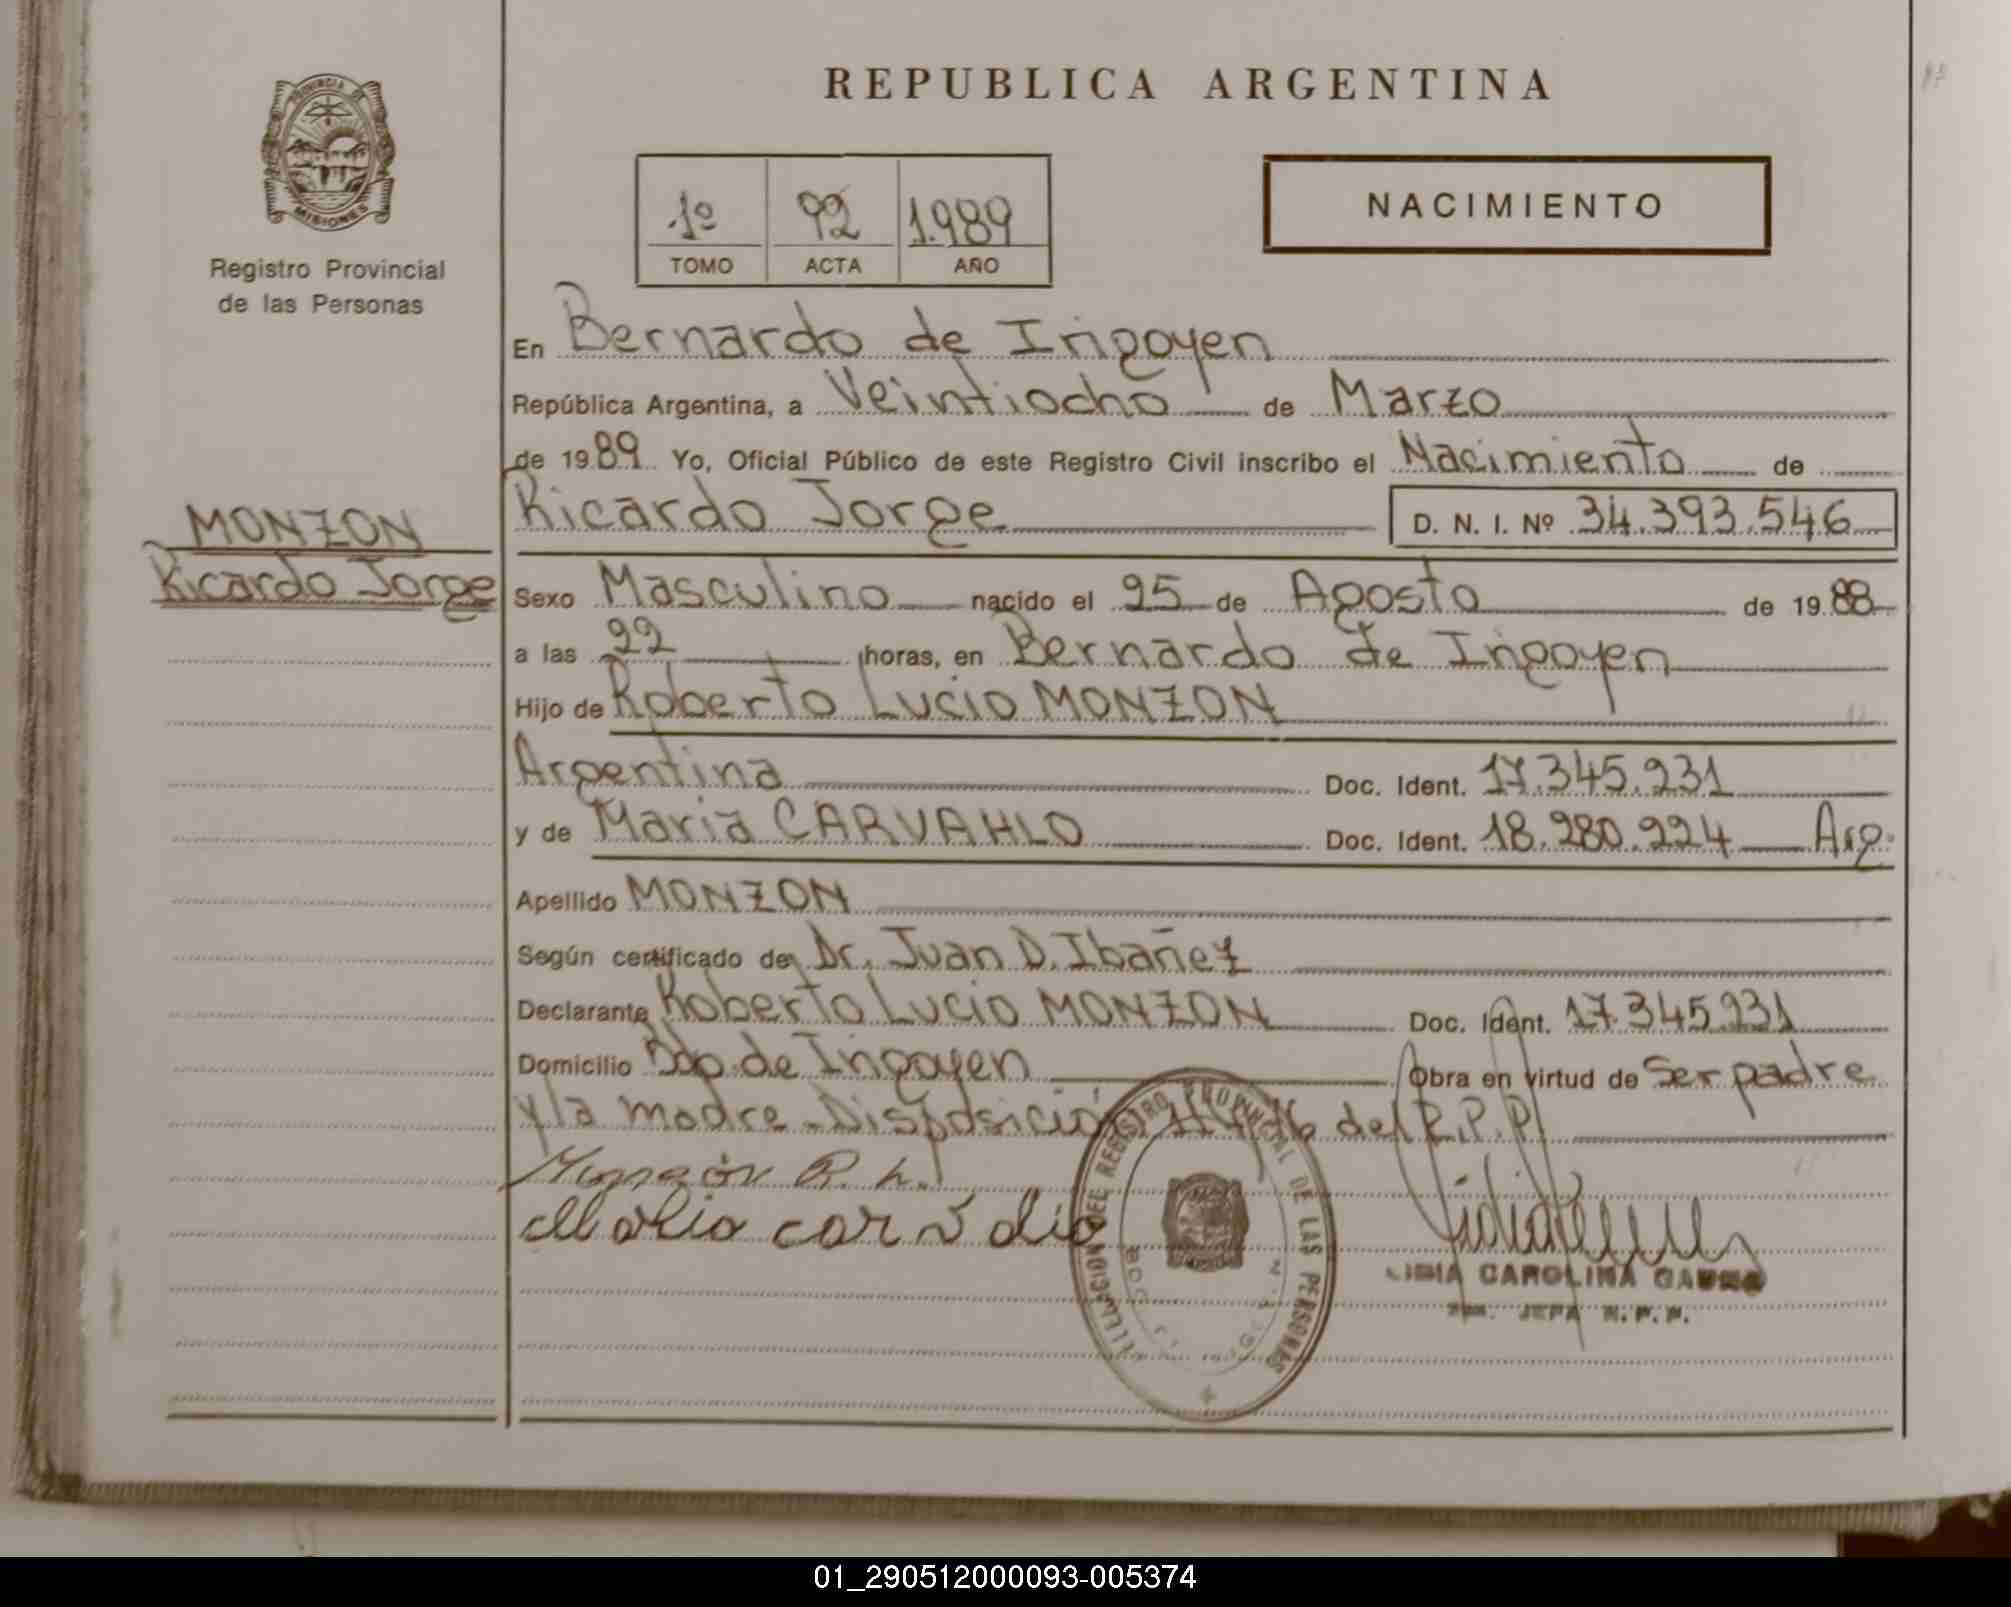 REPUBLICA ARGENTINA
PROVINCIA DE
MISIONES
Registro Provincial
de las Personas
NACIMIENTO
1º 92 1.989
TOMO ACTA AÑO
En Bernardo de Irigoyen
República Argentina, a Veintiocho de Marzo
de 1989 Yo, Oficial Público de este Registro Civil inscribo el Nacimiento de
MONZON
Ricardo Jorge
Ricardo Jorge D. N. I. Nº 34.393.546
Sexo Masculino nacido el 25 de Agosto de 1988
a las 22 horas, en Bernardo de Irigoyen
Hijo de Roberto Lucio MONZON
Argentina Doc. Ident. 17.345.231
y de Maria CARVAHLO Doc. Ident. 18.280.224 Arg.
Apellido MONZON
Según certificado de Dr. Juan D. Ibañez
Declarante Roberto Lucio MONZON Doc. Ident. 17.345.231
Domicilio Bdo. de Irigoyen Obra en virtud de Ser padre
y la madre - Disposición del R.P.P.
Monzón R. L.
DEL REGISTRO PROVINCIAL DE LAS PERSONAS
CAROLINA
JEFA R.P.P.
01_290512000093-005374